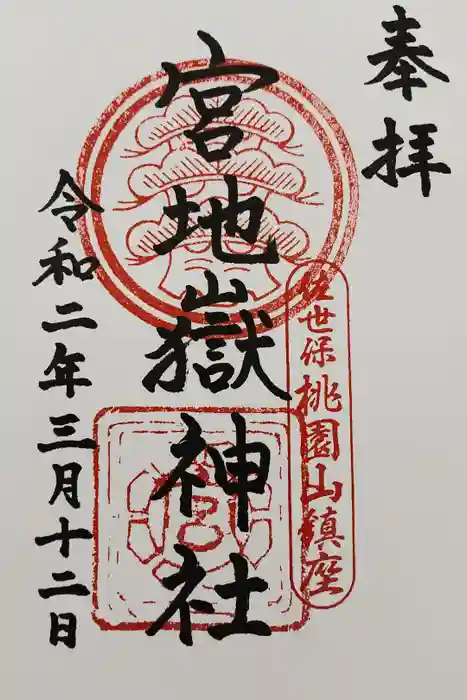 奉拝
佐世保桃園山鎮座
宮地嶽神社
令和二年三月十二日